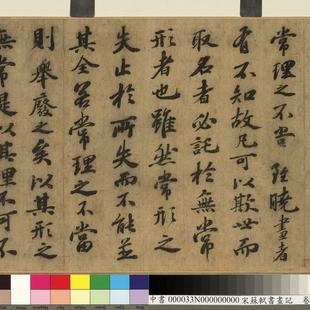 常理之不當雖曉畫者
有不知故凡可以欺世而
取名者必託於無常
形者也雖然常形之
失止於所失而不能病
其全若常理之不當
則舉廢之矣以其形之
無常是以其理不可不
中書 000033N000000000 宋蘇軾書畫記 卷